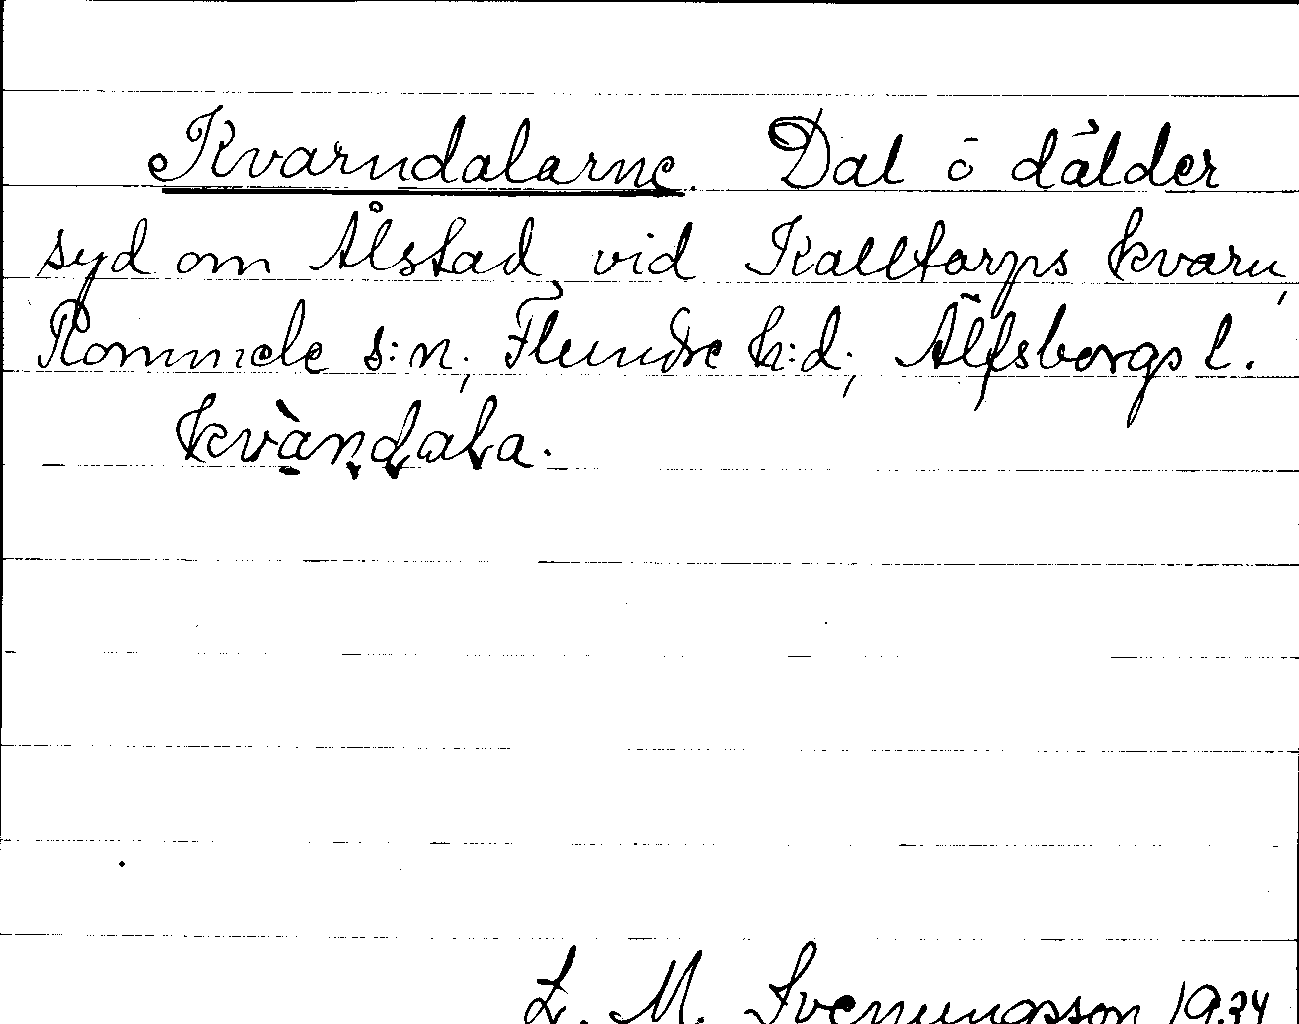 Kvarndalarne. Dal ö dälder
syd om Ålstad vid Kalltorps kvarn,
Rommele s:n, Flundre h:d, Älfsborgs l.
kvàndala.
L. M. Svenungsson 1934